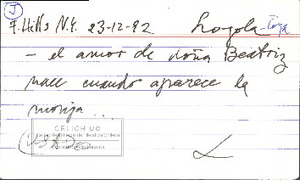 J
F. Hills N.Y. 23-12-92 Loyola-
- el amor de doña Beatriz
nace cuando aparece la
monja...
CELICH UC
(USADO)